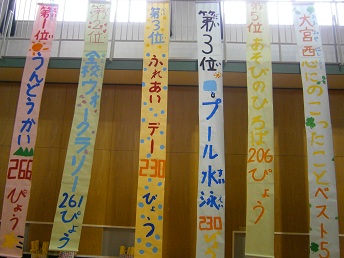 大宮西心にのこったことベスト5
第5位 あそびのひろば 206ぴょう
第3位 プール水泳 230
すいえい
第3位 ふれあいデー 230ぴょう
第2位 全校フォークラリー 261ぴょう
第1位 うんどうかい 266ぴょう